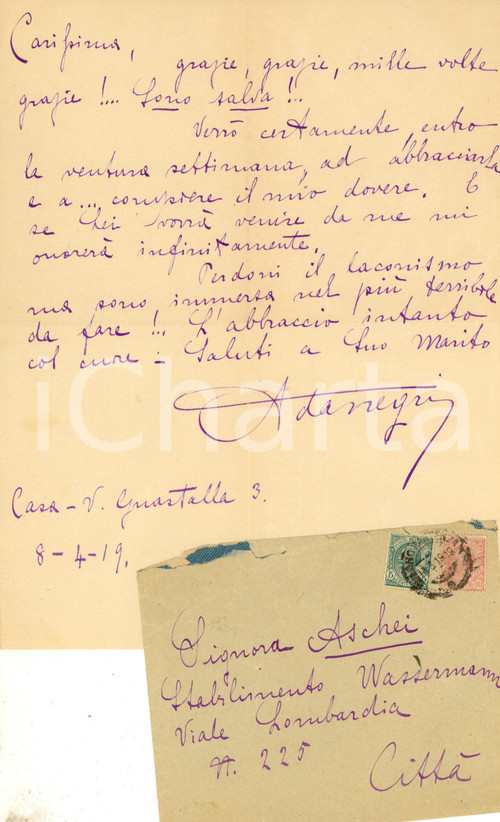 Carissima,
grazie, grazie, mille volte
grazie !... Sono salva !..
Verrò certamente, entro
la ventura settimana, ad abbracciarLa
e a ... compiere il mio dovere. E
se Lei vorrà venire da me mi
onorerà infinitamente.
Perdoni il laconismo
ma sono immersa nel più terribile
da fare !.. L'abbraccio intanto
col cuore - Saluti a Suo Marito
Ada Negri
Casa - V. Guastalla 3.
8-4-19.
iCharta
Signora Aschei
Stabilimento Wassermann
Viale Lombardia
N. 225
Città